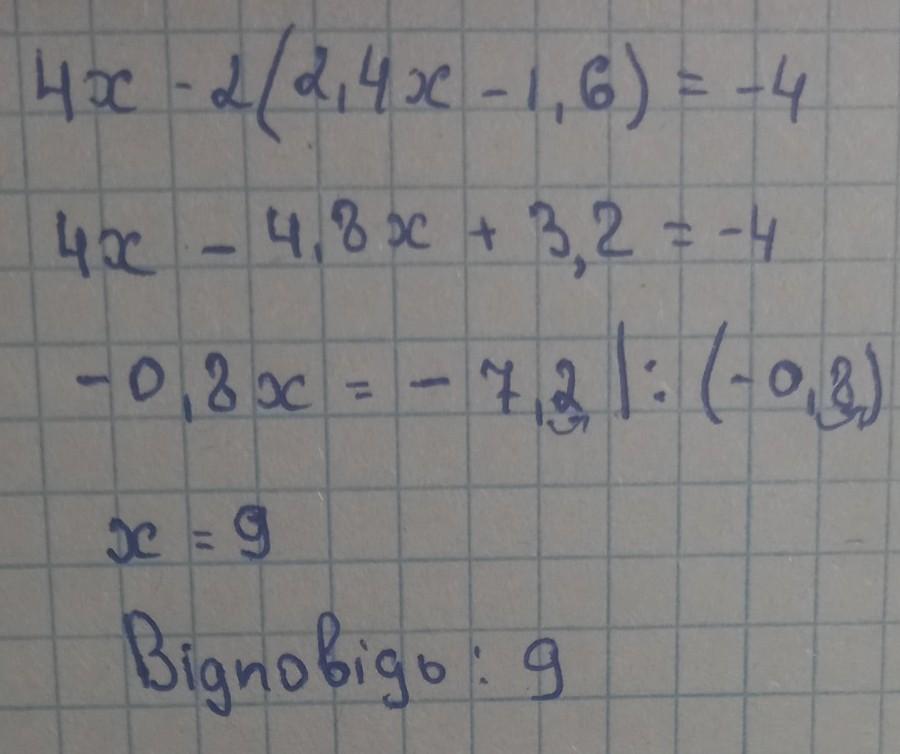 4x - 2(2,4x - 1,6) = -4
4x - 4,8x + 3,2 = -4
-0,8x = -7,2 |: (-0,8)
x = 9
Відповідь: 9